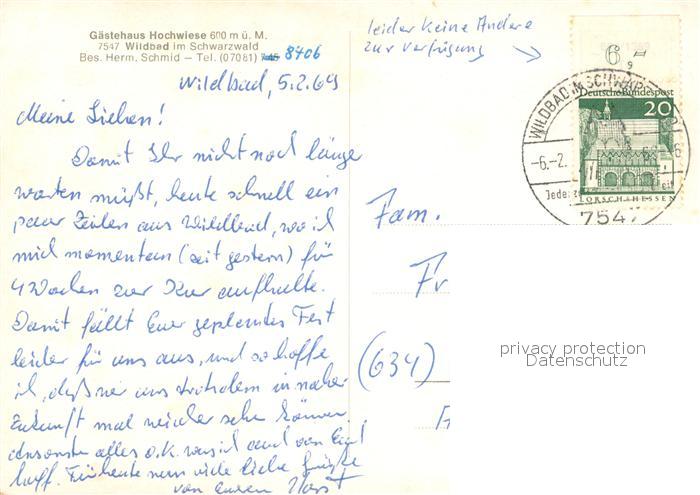 Gästehaus Hochwiese 600 m ü. M.
7547 Wildbad im Schwarzwald
Bes. Herm. Schmid — Tel. (07081) 8406
leider keine Andere
zur Verfügung
Wildbad, 5.2.69
Meine Lieben!
Damit Ihr nicht noch länger
warten müßt, heute schnell ein
paar Zeilen aus Wildbad, wo ich
mich momentan (seit gestern) für
4 Wochen zur Kur aufhalte.
Damit fällt Euer geplantes Fest
leider für uns aus, und so hoffe
ich, daß wir uns trotzdem in naher
Zukunft mal wieder sehen können
ansonsten alles o.k. was ich auch von Euch
hoffe. Für heute nun viele liebe Grüße
von Eurem Horst
Fam.
Fr
(634)
6,-
9
Deutsche Bundespost
20
LORSCH/HESSEN
WILDBAD i. SCHWARZW
-6.-2.
7547
privacy protection
Datenschutz